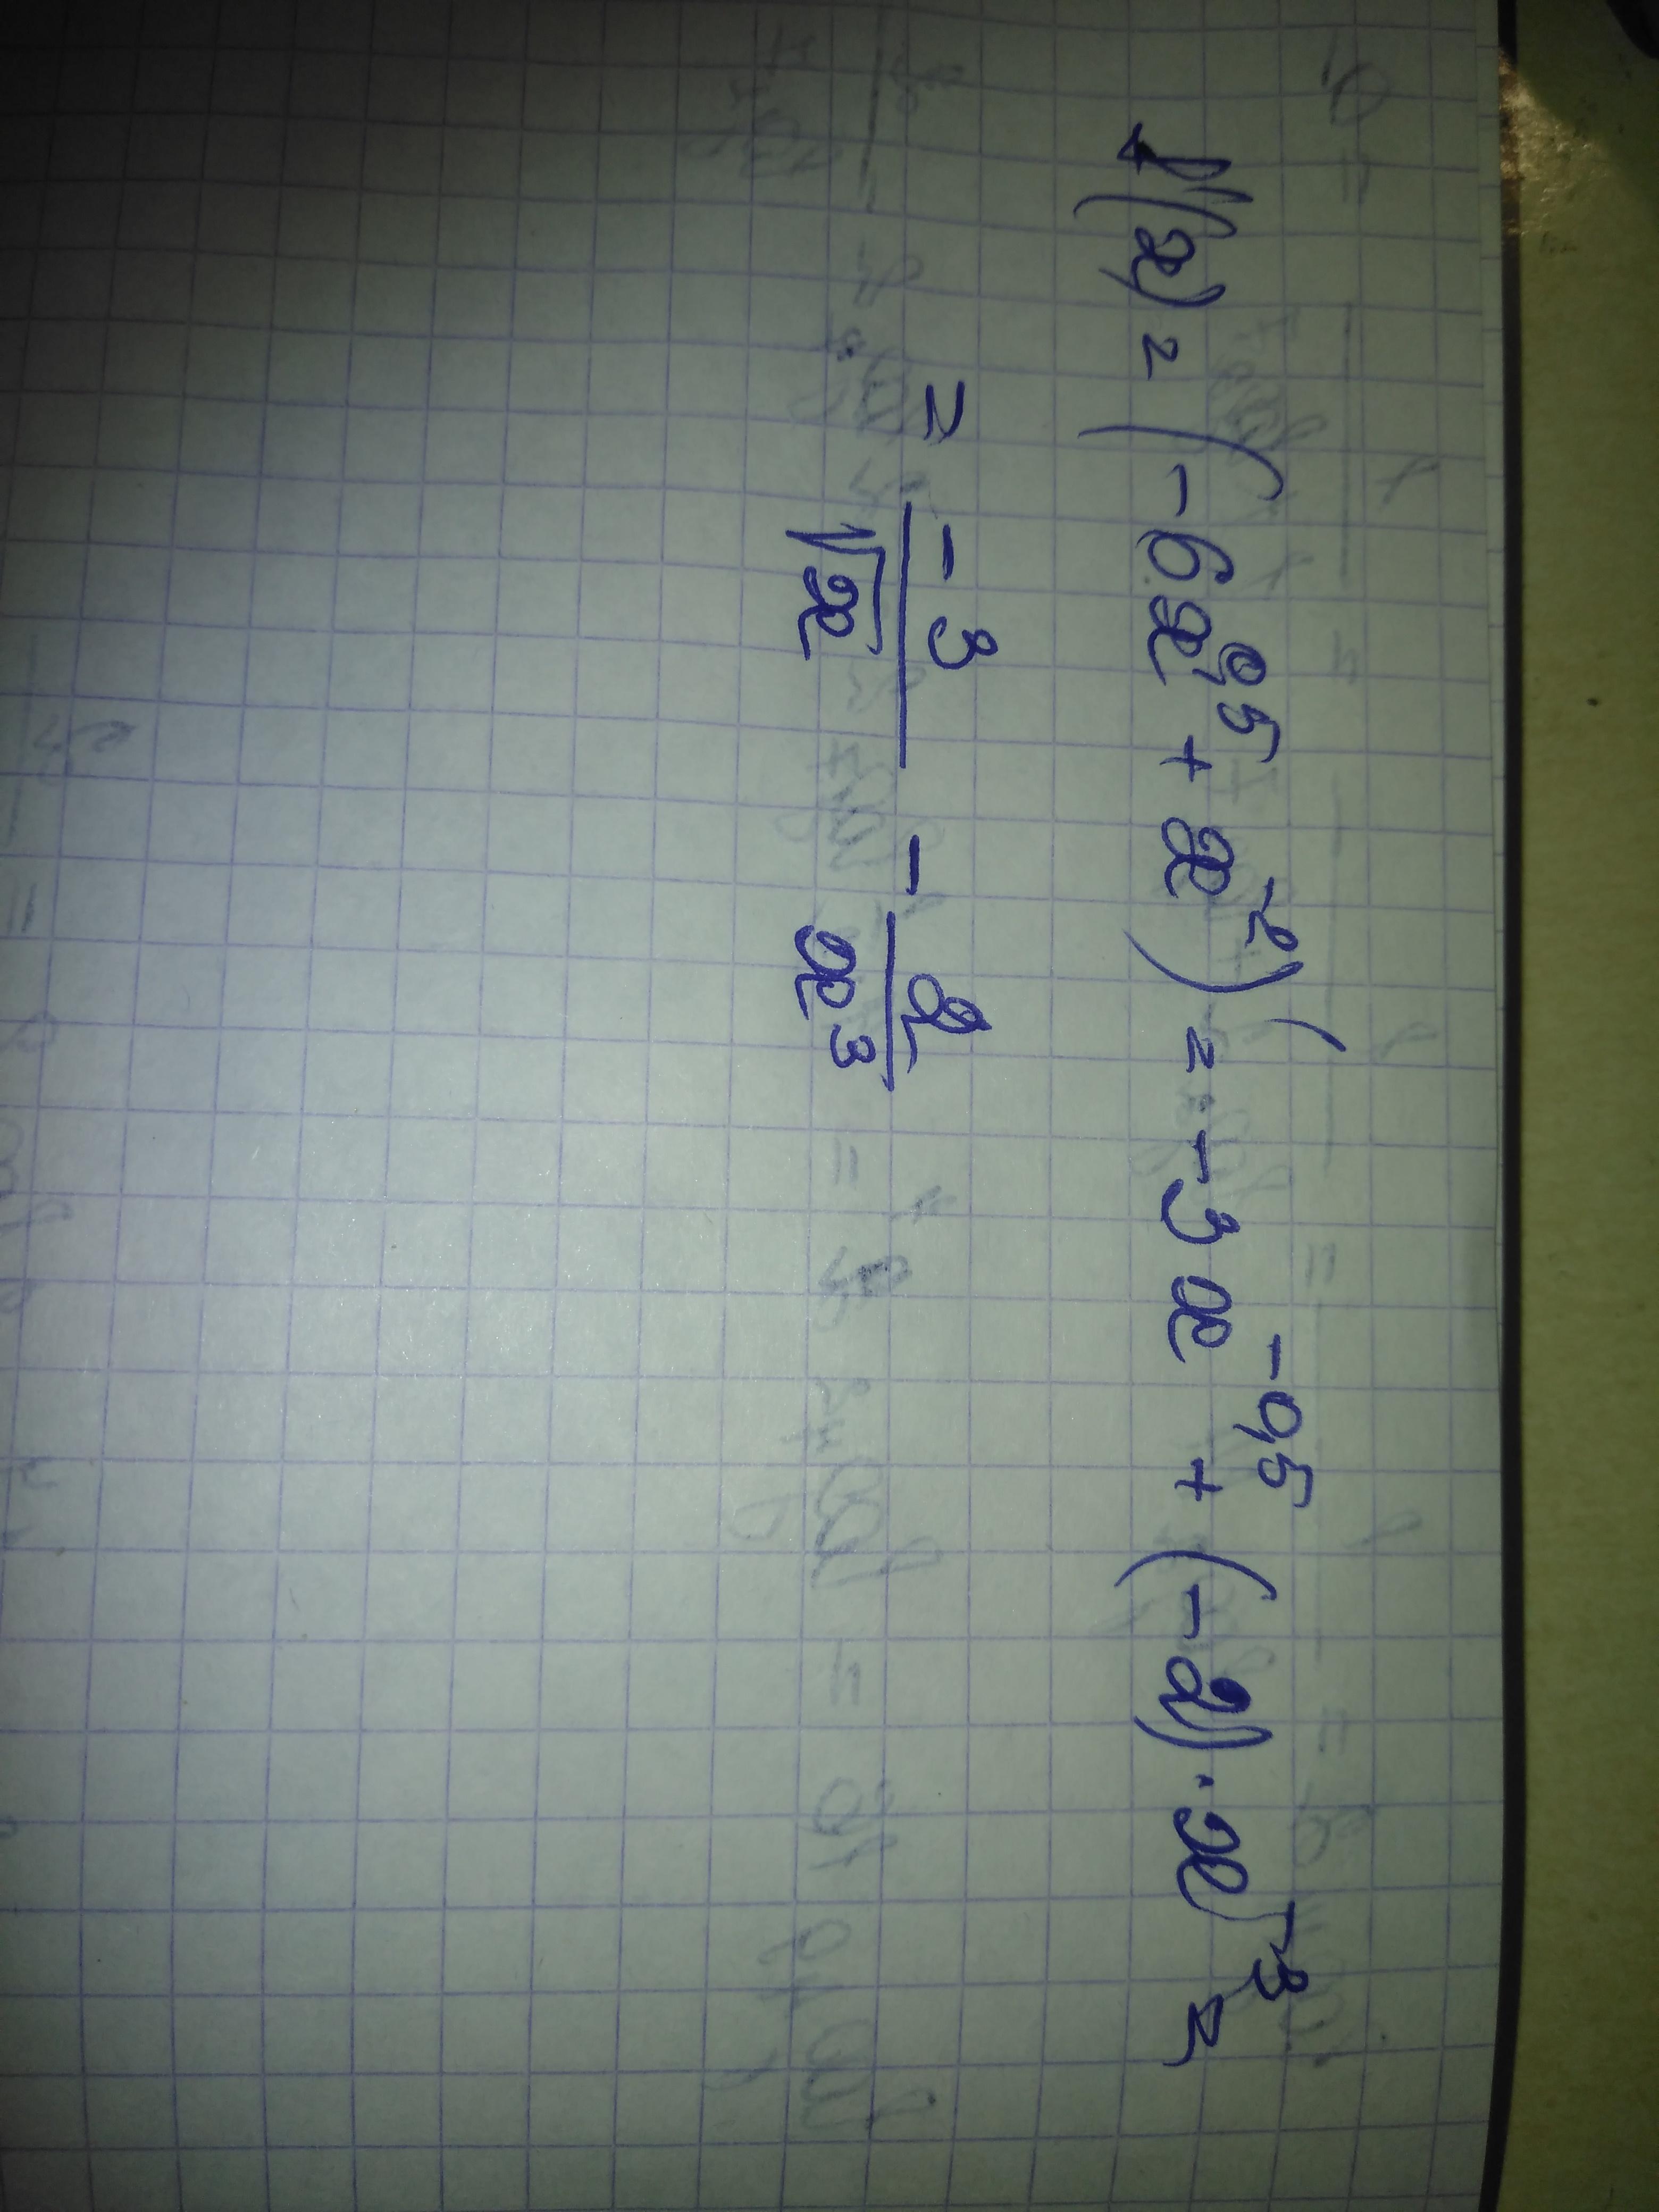 f(x) = (-6x^0,5 + x^-2)' = -3x^-0,5 + (-2)·x^-3 =
= -3/√x - 2/x^3